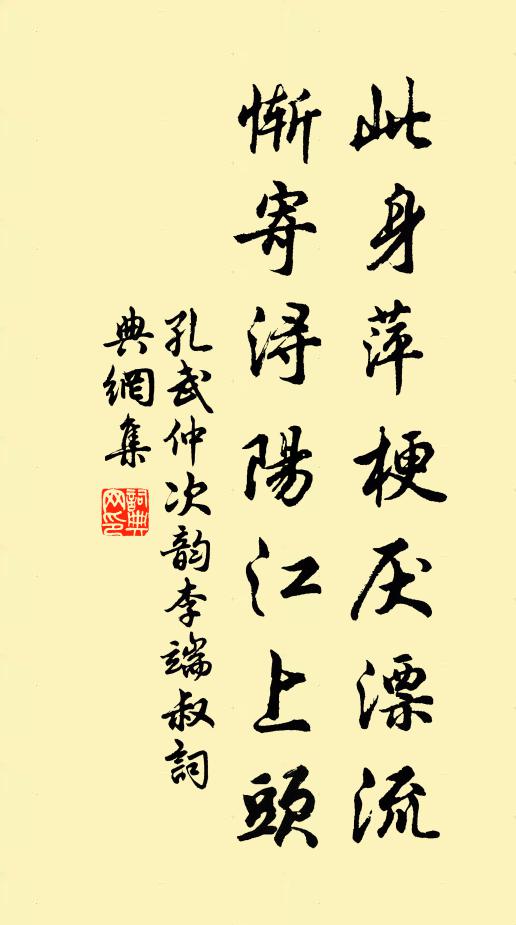 此身萍梗厌漂流
惭寄浔陽江上頭
孔武仲次韵李端叔詞
典網集
詞典网印